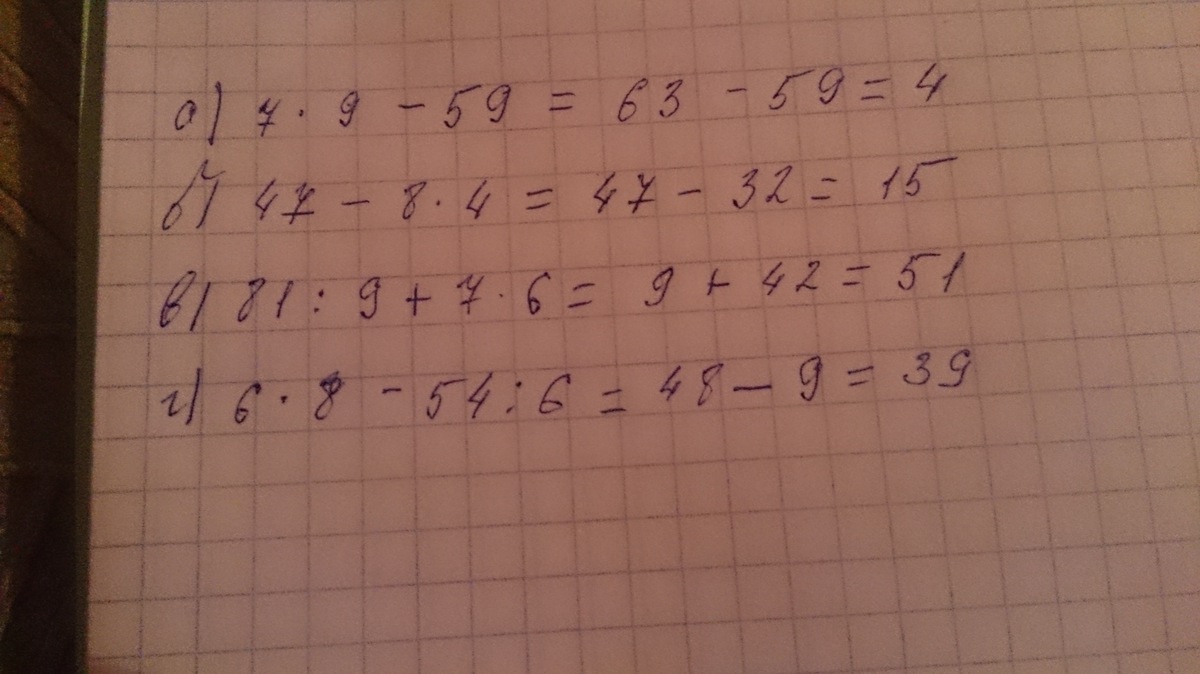 а) 7 · 9 - 59 = 63 - 59 = 4
б) 47 - 8 · 4 = 47 - 32 = 15
в) 81 : 9 + 7 · 6 = 9 + 42 = 51
г) 6 · 8 - 54 : 6 = 48 - 9 = 39